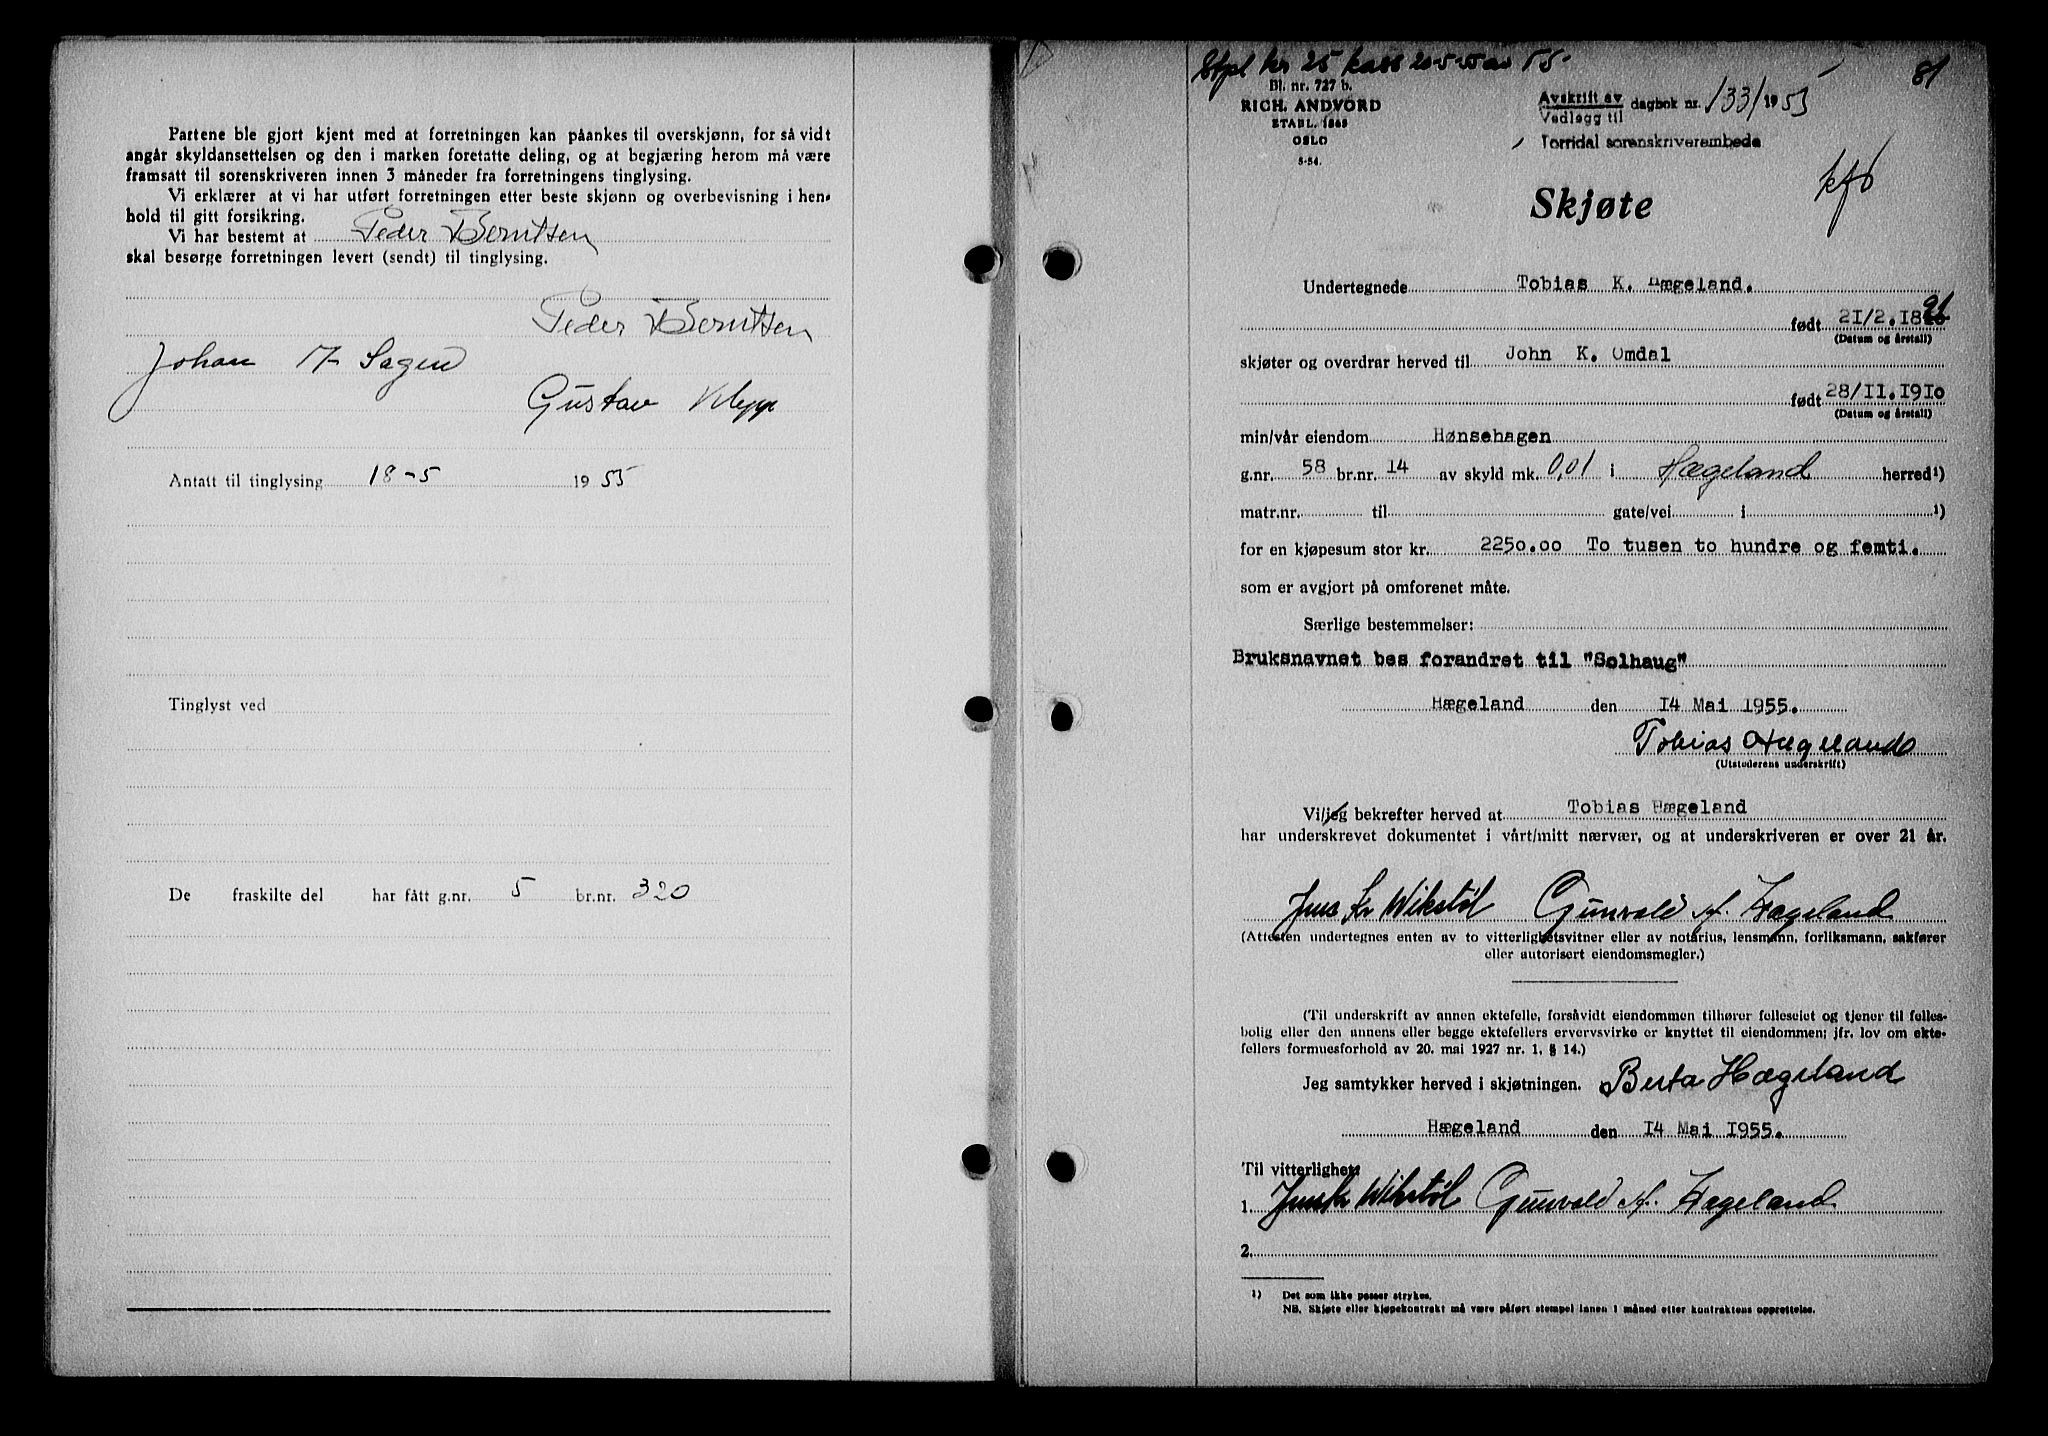 Partene ble gjort kjent med at forretningen kan påankes til overskjønn, for så vidt
angår skyldansettelsen og den i marken foretatte deling, og at begjæring herom må være
framsatt til sorenskriveren innen 3 måneder fra forretningens tinglysing.
Vi erklærer at vi har utført forretningen etter beste skjønn og overbevisning i hen-
hold til gitt forsikring.
Vi har bestemt at Peder Berntsen
skal besørge forretningen levert (sendt) til tinglysing.
Peder Berntsen
Johan Sagen
Gustav Klepp
Antatt til tinglysing 18-5 1955
Tinglyst ved
De fraskilte del har fått g.nr. 5 br.nr. 320
Stpl kr 25 kass 20-5-55 av TS- 81
Bl. nr. 727 b.
RICH. ANDVORD
ETABL. 1865
OSLO
5-54.
Avskrift av
Vedlegg til dagbok nr. 133/1955
Torridal sorenskriverembede
Skjøte
Undertegnede Tobias K. Hægeland.
født 21/2.1891
(Datum og årstall)
skjøter og overdrar herved til John K. Omdal
født 28/11.1910
(Datum og årstall)
min/vår eiendom Hønsehagen
g.nr. 58 br.nr. 14 av skyld mk. 0,01 i Hægeland herred¹)
matr.nr. til gate/vei i ¹)
for en kjøpesum stor kr. 2250.00 To tusen to hundre og femti.
som er avgjort på omforenet måte.
Særlige bestemmelser:
Bruksnavnet bes forandret til "Solhaug"
Hægeland den 14 Mai 1955.
Tobias Hægeland
(Utstederens underskrift)
Vi/jeg bekrefter herved at Tobias Hægeland
har underskrevet dokumentet i vårt/mitt nærvær, og at underskriveren er over 21 år.
Jens Kr Wikstøl Gunvald A. Hægeland
(Attesten undertegnes enten av to vitterlighetsvitner eller av notarius, lensmann, forliksmann, sakfører
eller autorisert eiendomsmegler.)
(Til underskrift av annen ektefelle, forsåvidt eiendommen tilhører felleseiet og tjener til felles-
bolig eller den annens eller begge ektefellers ervervsvirke er knyttet til eiendommen; jfr. lov om ekte-
fellers formuesforhold av 20. mai 1927 nr. 1. § 14.)
Jeg samtykker herved i skjøtningen. Berta Hægeland
Hægeland den 14 Mai 1955.
Til vitterlighet:
1. Jens Kr Wikstøl Gunvald A. Hægeland
2.
¹) Det som ikke passer strykes.
NB. Skjøte eller kjøpekontrakt må være påført stempel innen 1 måned etter kontraktens opprettelse.